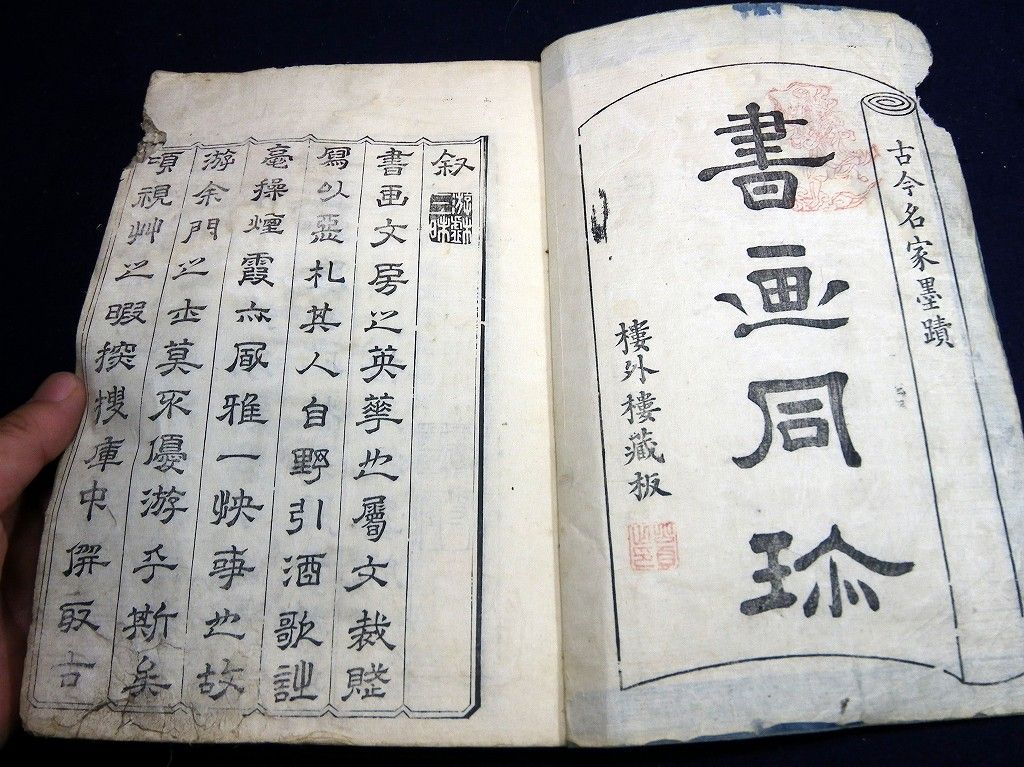 古今名家墨蹟
書画同珎
樓外樓藏板
叙
書画文房之英華也屬文裁
以惡札其人自野引酒歌
毫操煙霞亦雅一快事也故
游余門之士莫不優游乎斯矣
頃視艸之暇探搜庫中取古